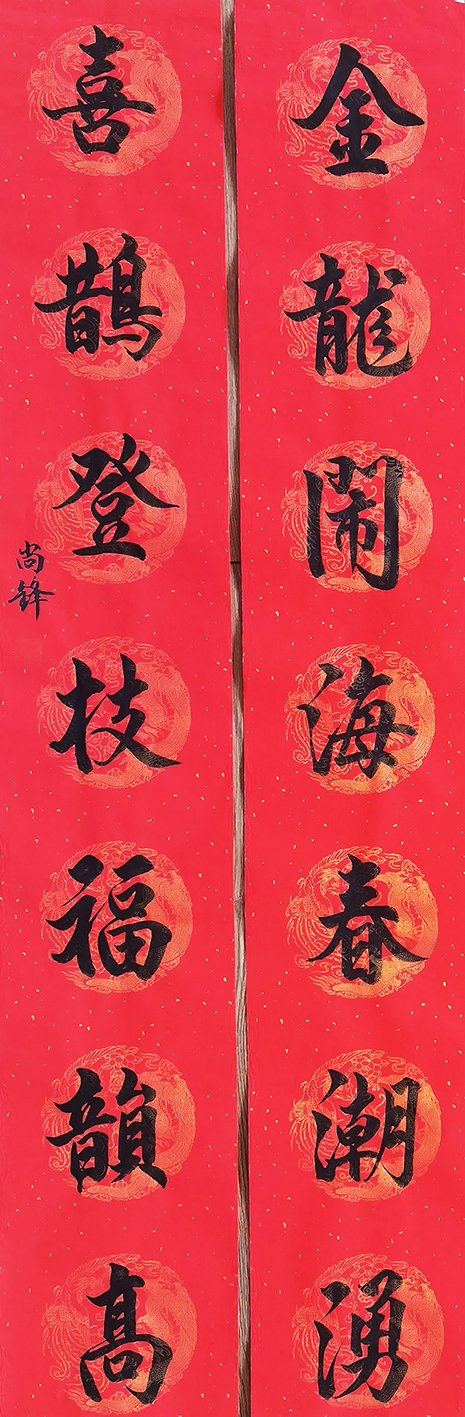 金龍鬧海春潮湧
喜鵲登枝福韻高
尚鋒